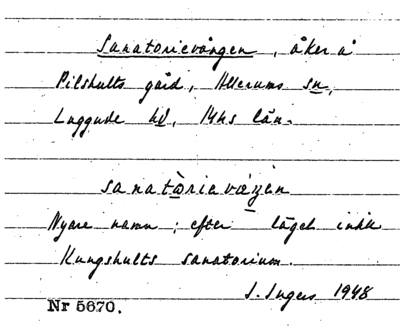 Sanatorievången, åker å
Pilshults gård, Allerums sn,
Luggude hd, Mhs län.
sanatòrievæŋen
Nyare namn; efter läget intill
Kungshults sanatorium.
I. Ingers 1948
Nr 5670.